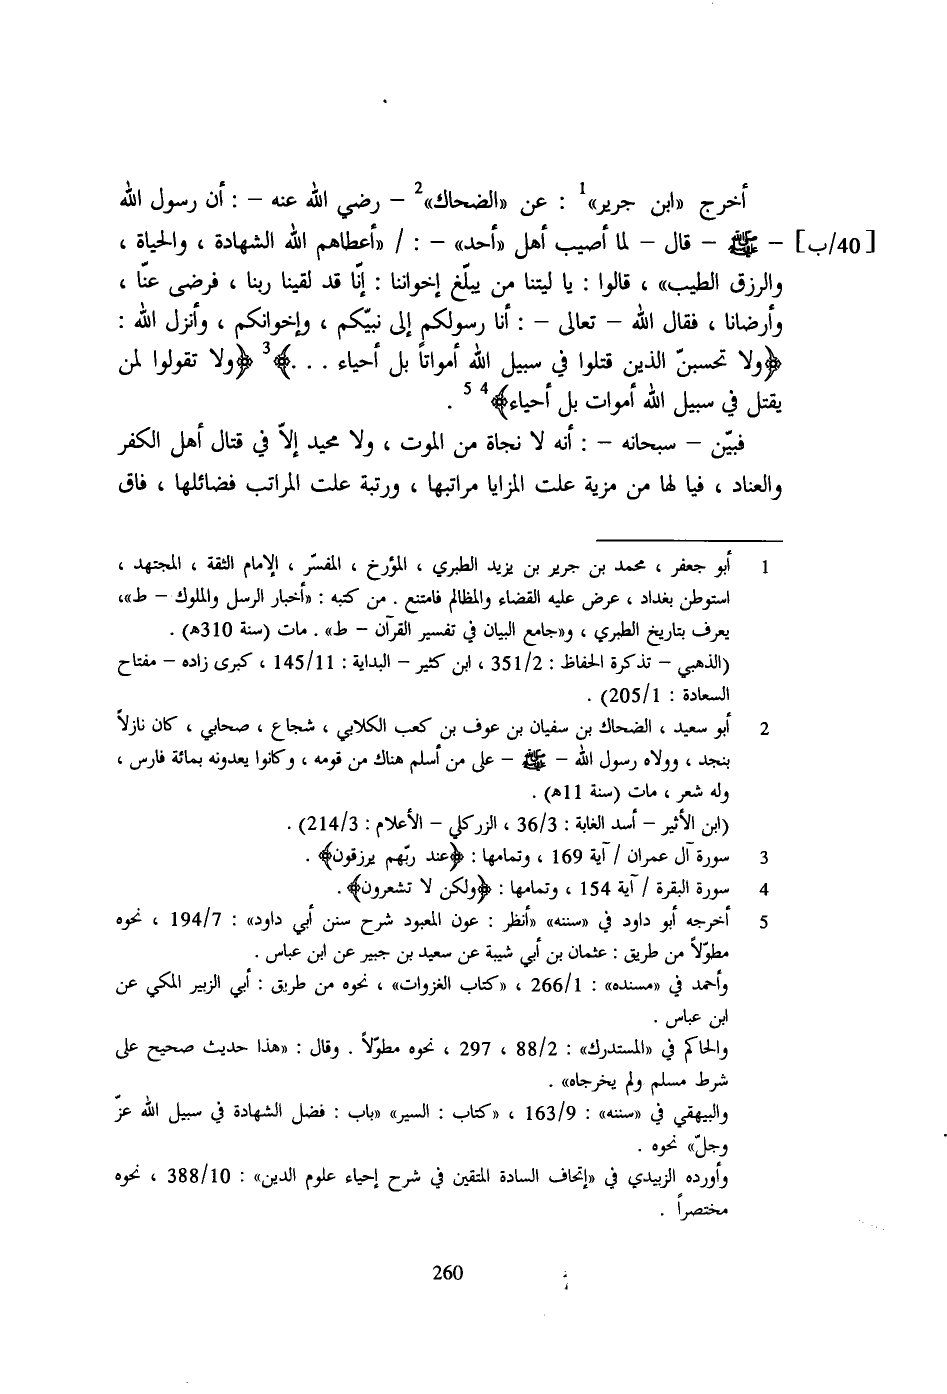 أخرج «ابن جرير»1 : عن «الضحاك»2 – رضي الله عنه – : أن رسول الله
[40/ب] – ﷺ – قال – لما أصيب أهل «أحد» – : / «أعطاهم الله الشهادة ، والحياة ،
والرزق الطيب» ، قالوا : يا ليتنا من يبلّغ إخواننا : إنّا قد لقينا ربنا ، فرضى عنّا ،
وأرضانا ، فقال الله – تعالى – : أنا رسولكم إلى نبيّكم ، وإخوانكم ، وأنزل الله :
﴿ولا تحسبنّ الذين قتلوا في سبيل الله أمواتاً بل أحياء . . .﴾3 ﴿ولا تقولوا لمن
يقتل في سبيل الله أموات بل أحياء﴾4 5 .
فبيّن – سبحانه – : أنه لا نجاة من الموت ، ولا محيد إلاّ في قتال أهل الكفر
والعناد ، فيا لها من مزية علت المزايا مراتبها ، ورتبة علت المراتب فضائلها ، فاق
1 أبو جعفر ، محمد بن جرير بن يزيد الطبري ، المؤرخ ، المفسّر ، الإمام الثقة ، المجتهد ،
استوطن بغداد ، عرض عليه القضاء والمظالم فامتنع . من كتبه : «أخبار الرسل والملوك – ط»،
يعرف بتاريخ الطبري ، و«جامع البيان في تفسير القرآن – ط» . مات (سنة 310ه) .
(الذهبي – تذكرة الحفاظ : 351/2 ، ابن كثير – البداية : 145/11 ، كبرى زاده – مفتاح
السعادة : 205/1) .
2 أبو سعيد ، الضحاك بن سفيان بن عوف بن كعب الكلابي ، شجاع ، صحابي ، كان نازلاً
بنجد ، وولاه رسول الله – ﷺ – على من أسلم هناك من قومه ، وكانوا يعدونه بمائة فارس ،
وله شعر ، مات (سنة 11ه) .
(ابن الأثير – أسد الغابة : 36/3 ، الزركلي – الأعلام : 214/3) .
3 سورة آل عمران / آية 169 ، وتمامها : ﴿عند ربّهم يرزقون﴾ .
4 سورة البقرة / آية 154 ، وتمامها : ﴿ولكن لا تشعرون﴾ .
5 أخرجه أبو داود في «سننه» «أنظر : عون المعبود شرح سنن أبي داود» : 194/7 ، نحوه
مطوّلاً من طريق : عثمان بن أبي شيبة عن سعيد بن جبير عن ابن عباس .
وأحمد في «مسنده» : 266/1 ، «كتاب الغزوات» ، نحوه من طريق : أبي الزبير المكي عن
ابن عباس .
والحاكم في «المستدرك» : 88/2 ، 297 ، نحوه مطوّلاً . وقال : «هذا حديث صحيح على
شرط مسلم ولم يخرجاه» .
والبيهقي في «سننه» : 163/9 ، «كتاب : السير» «باب : فضل الشهادة في سبيل الله عزّ
وجلّ» نحوه .
وأورده الزبيدي في «إتحاف السادة المتقين في شرح إحياء علوم الدين» : 388/10 ، نحوه
مختصراً .
260